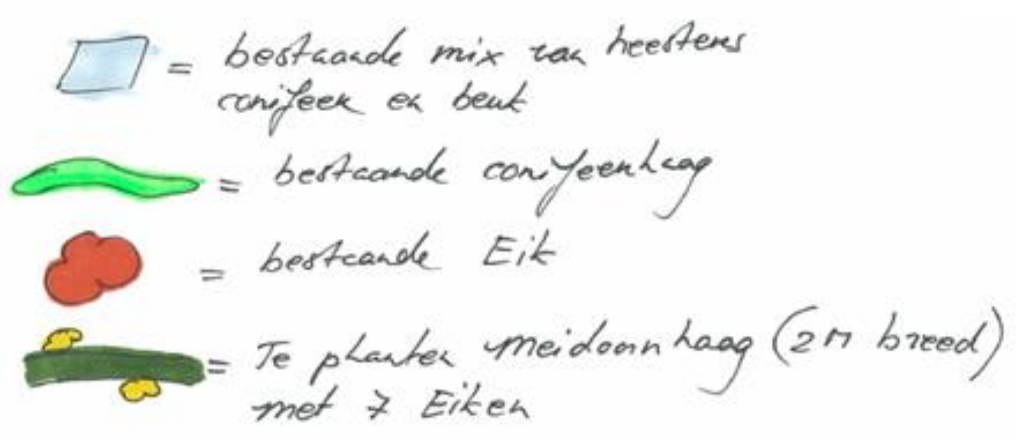 = bestaande mix van heesters
conifeer en beuk
= bestaande coniferenhaag
= bestaande Eik
= Te planten meidoornhaag (2M breed)
met 7 Eiken